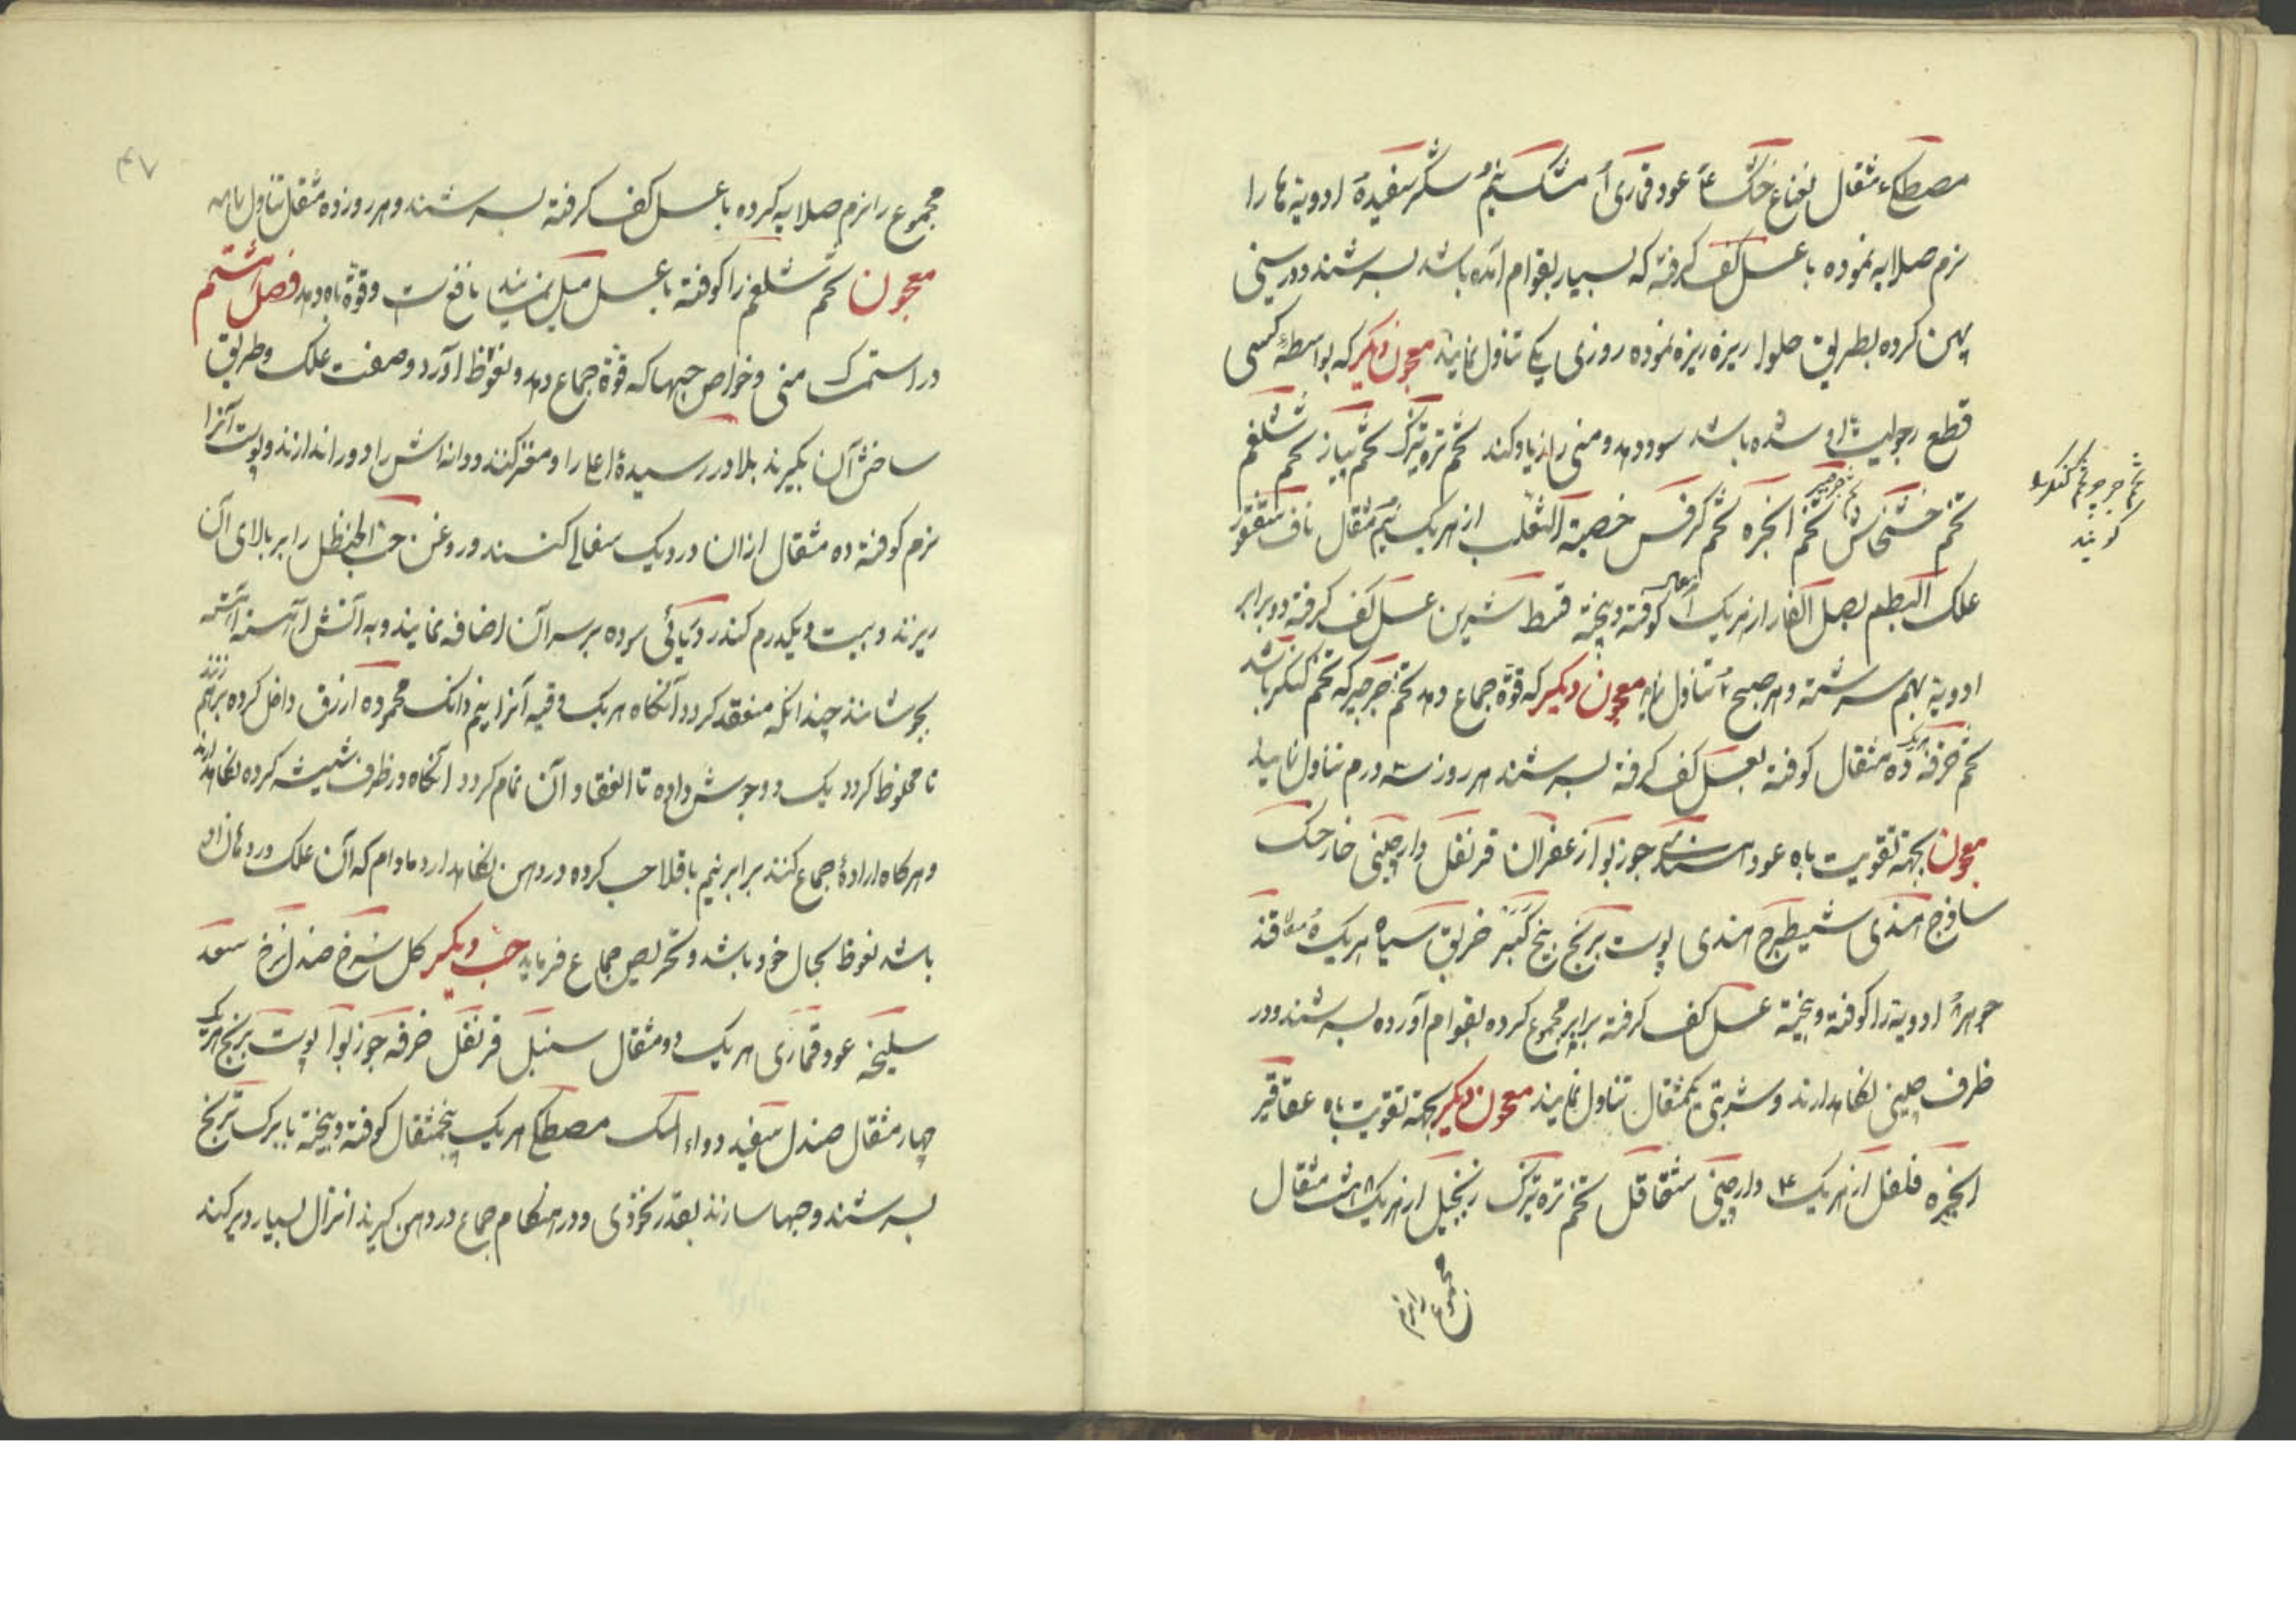 مصطکی مثقال نعناع خشک عود قماری مشک نیم شکر سفیده ادویه ها را
نرم صلایه نموده با عسل کف کرفته که بسیار بقوام آمده باشد بسرشند و در سینی
پهن کرده بطریق حلوا ریزه ریزه نموده روزی یکی تناول نمایند معجون دیکر که بواسطه کسی
قطع رجولیت او شده باشد سود دهد و منی را زیاد کند تخم تره تیزک تخم پیاز تخم شلغم
تخم خشخاش تخم انجره تخم کرفس خصیة الثعلب از هریک نیم مثقال ناف سقنقور
علک البطم بصل الفار از هریک کوفته و بیخته قسط شیرین عسل کف کرفته دو برابر
ادویه بهم سرشته و هر صبح تناول معجون دیکر که قوة جماع دهد تخم جرجیر که تخم کنکر باشد
تخم خرفه ده مثقال کوفته بعسل کف کرفته بسرشند هر روز سه درم تناول نمایند
تخم جرجیر تخم کنکر
کویند
معجون بجهة تقویت باه عود جوز بوا زعفران قرنفل دارچینی خارخسک
ساذج هندی شیطرج هندی پوست برنج بیخ کبر خربق سیاه هریک قند
ادویه را کوفته و بیخته عسل کف کرفته برابر مجموع کرده بقوام آورده بسرشند و در
ظرف چینی نکاهدارند و شربتی یکمثقال تناول نمایند معجون دیکر بجهة تقویت باه عقاقیر
انجره فلفل از هریک ۴ دارچینی شقاقل تخم تره تیزک زنجبیل از هریک هشت مثقال
مجموع را نرم
۴۷
مجموع را نرم صلایه کرده با عسل کف کرفته بسرشند و هر روز ده مثقال تناول نمایند
معجون تخم شلغم را کوفته با عسل میل نمایند نافع است و قوة باه دهد فصل هشتم
در استمساک منی و خواص حبها که قوة جماع دهد و نعوظ آورد و صفت علک و طریق
ساختن آن بکیرند بلادر رسیدۀ اعلا را و مغز کنند و دانه اش را دور اندازند و پوست آنرا
نرم کوفته ده مثقال ازان در دیک سفالی کنند و روغن حب الحنظل را بر بالای آن
ریزند و بیست و یکدرم کندر دریائی سوده بر سر آن اضافه نمایند و به آتش آهسته آهسته
بجوشانند چندانکه منعقد کردد آنکاه هر یک وقیه آنرا نیم دانک محموده ازرق داخل کرده برهم زنند
تا مخلوط کردد یک دو جوش داده تا انعقاد آن تمام کردد آنکاه در ظرف شیشه کرده نکاهدارند
و هرکاه ارادۀ جماع کنند برابر نیم باقلا حب کرده در دهن نکاهدارد مادام که آن علک در دهان او
باشد نعوظ بحال خود باشد و تحریص جماع فرماید حب دیکر کل سرخ صندل سرخ سعد
سلیخه عود قماری هریک دو مثقال سنبل قرنفل خرفه جوز بوا پوست برنج هریک
چهار مثقال صندل سفید دواء المسک مصطکی هریک پنجمثقال کوفته و بیخته با برک ترنج
بسرشند و حبها سازند بقدر نخودی و در هنکام جماع در دهن کیرند انزال بسیار دیر کند